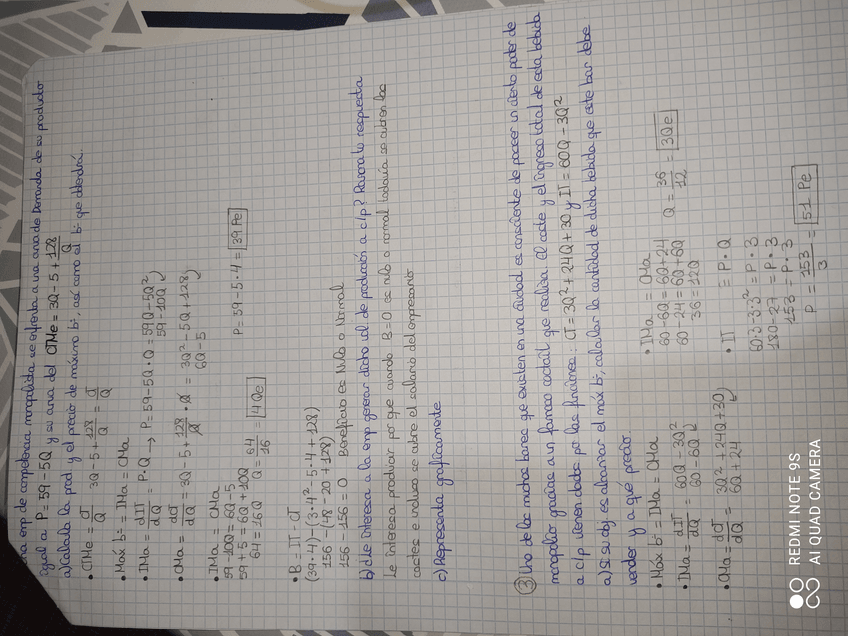 na emp de competencia monopolista se enfrenta a una curva de Demanda de su productor
igual a P = 59 - 5Q y su curva del CTMe = 3Q - 5 + 128/Q
a) Calcula la prod y el precio de máximo bº, así como el bº que obtendrá.
• CTMe = CT/Q 3Q - 5 + 128/Q = CT/Q
• Máx bº = IMa = CMa
• IMa = dIT/dQ = P · Q → P = 59 - 5Q · Q = 59Q - 5Q²
59 - 10Q
• CMa = dCT/dQ = 3Q - 5 + 128/Q · Q = 3Q² - 5Q + 128)
6Q - 5
• IMa = CMa
59 - 10Q = 6Q - 5
59 + 5 = 6Q + 10Q
64 = 16Q Q = 64/16 = 4Qe P = 59 - 5 · 4 = 39 Pe
• B = IT - CT
(39 · 4) - (3 · 4² - 5 · 4 + 128)
156 - (48 - 20 + 128)
156 - 156 = 0 Beneficio es Nulo o Normal
b) ¿Le interesa a la emp generar dicho vol de producción a c/p? Razona tu respuesta
Le interesa producir por que cuando B = 0 es nulo o normal todavía se cubren los
costes e incluso se cubre el salario del empresario
c) Representa gráficamente
③ Uno de los muchos bares que existen en una ciudad es consciente de poseer un cierto poder de
monopolio gracias a un famoso cóctail que realiza. El coste y el ingreso total de esta bebida
a c/p vienen dados por las funciones: CT = 3Q² + 24Q + 30 y IT = 60Q - 3Q²
a) Si su obj es alcanzar el máx bº, calcular la cantidad de dicha bebida que este bar debe
vender y a qué precio
• Máx bº = IMa = CMa
• IMa = dIT/dQ = 60Q - 3Q²
60 - 6Q
• CMa = dCT/dQ = 3Q² + 24Q + 30)
6Q + 24
• IMa = CMa
60 - 6Q = 6Q + 24
60 - 24 = 6Q + 6Q
36 = 12Q Q = 36/12 = 3Qe
• IT = P · Q
60·3 - 3·3² = P · 3
180 - 27 = P · 3
153 = P · 3
P = 153/3 = 51 Pe
REDMI NOTE 9S
AI QUAD CAMERA